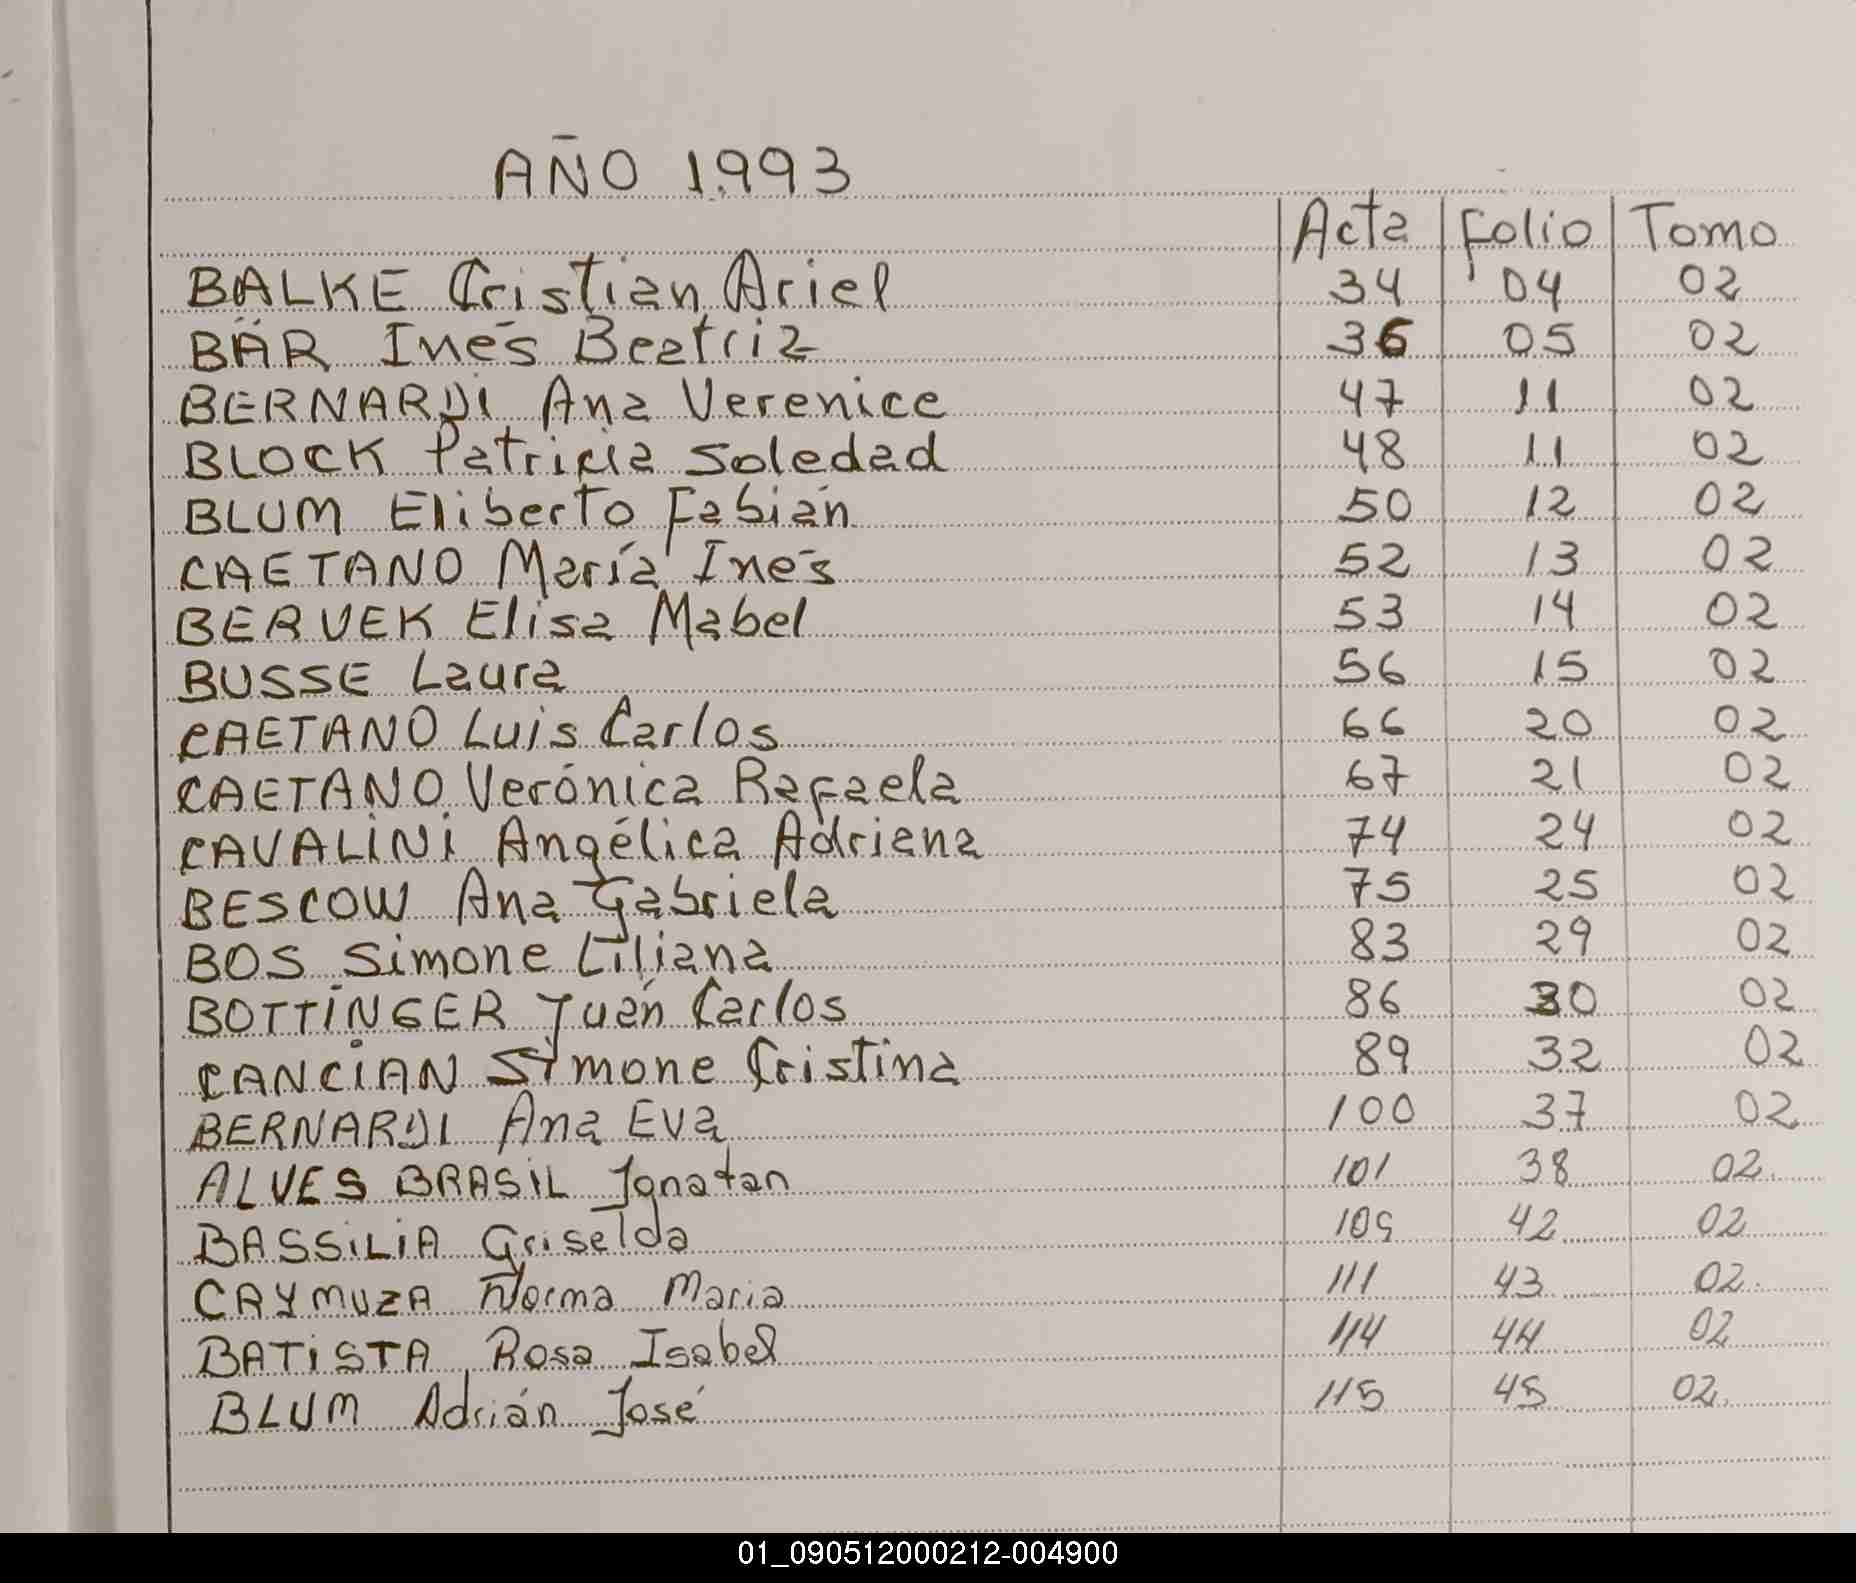 AÑO 1.993
Acta Folio Tomo
BALKE Cristian Ariel 34 04 02
BÄR Inés Beatriz 36 05 02
BERNARDI Ana Verenice 47 11 02
BLOCK Patricia Soledad 48 11 02
BLUM Eliberto Fabián 50 12 02
CAETANO María Inés 52 13 02
BERVEK Elisa Mabel 53 14 02
BUSSE Laura 56 15 02
CAETANO Luis Carlos 66 20 02
CAETANO Verónica Rafaela 67 21 02
CAVALiNi Angélica Adriana 74 24 02
BESCOW Ana Gabriela 75 25 02
BOS Simone Liliana 83 29 02
BOTTiNGER Juán Carlos 86 30 02
CANCiAN Simone Cristina 89 32 02
BERNARDI Ana Eva 100 37 02
ALVES BRASiL Jonatan 101 38 02.
BASSiLiA Griselda 109 42 02
CAYMUZA Norma Maria 111 43 02.
BATiSTA Rosa Isabel 114 44 02
BLUM Adrián José 115 45 02.
01_090512000212-004900